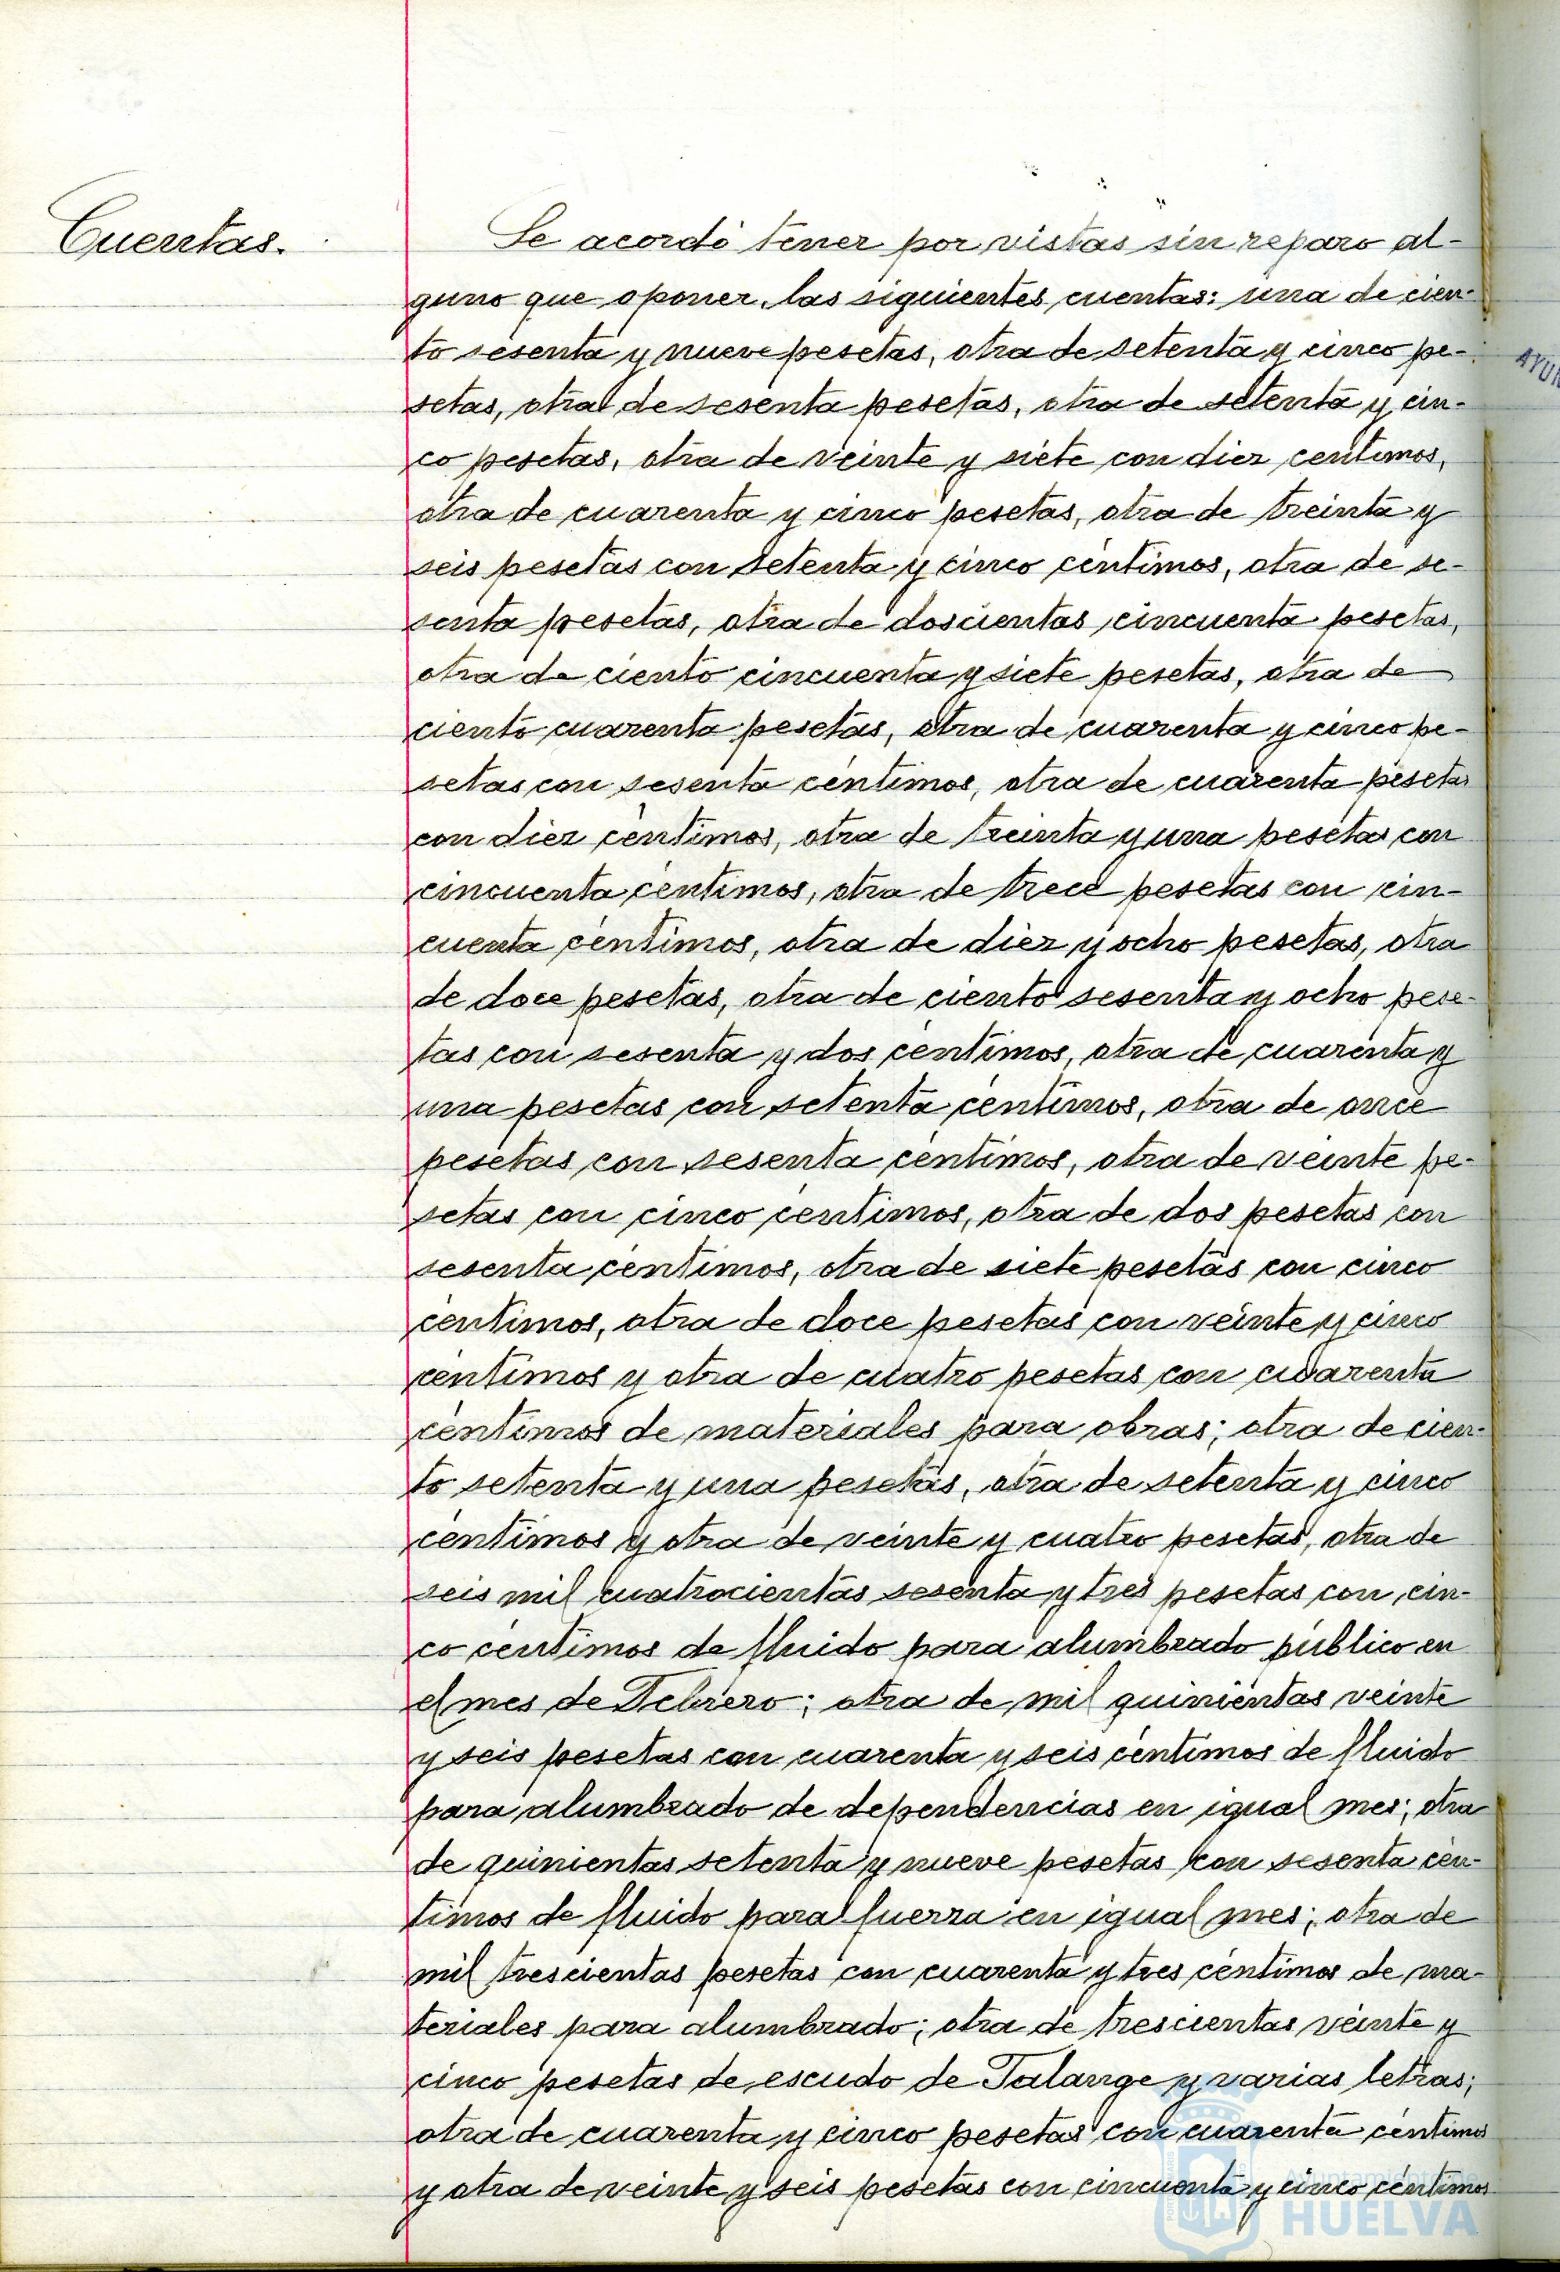 Cuentas.
Se acordó tener por vistas sin reparo al-
guno que oponer, las siguientes cuentas: una de cien-
to sesenta y nueve pesetas, otra de setenta y cinco pe-
setas, otra de sesenta pesetas, otra de setenta y cin-
co pesetas, otra de veinte y siete con diez centimos,
otra de cuarenta y cinco pesetas, otra de treinta y
seis pesetas con setenta y cinco céntimos, otra de se-
senta pesetas, otra de doscientas cincuenta pesetas,
otra de ciento cincuenta y siete pesetas, otra de
ciento cuarenta pesetas, otra de cuarenta y cinco pe-
setas con sesenta céntimos, otra de cuarenta pesetas
con diez céntimos, otra de treinta y una pesetas con
cincuenta céntimos, otra de trece pesetas con cin-
cuenta céntimos, otra de diez y ocho pesetas, otra
de doce pesetas, otra de ciento sesenta y ocho pese-
tas con sesenta y dos céntimos, otra de cuarenta y
una pesetas con setenta céntimos, otra de once
pesetas con sesenta céntimos, otra de veinte pe-
setas con cinco céntimos, otra de dos pesetas con
sesenta céntimos, otra de siete pesetas con cinco
céntimos, otra de doce pesetas con veinte y cinco
céntimos y otra de cuatro pesetas con cuarenta
céntimos de materiales para obras; otra de cien-
to setenta y una pesetas, otra de setenta y cinco
céntimos y otra de veinte y cuatro pesetas, otra de
seis mil cuatrocientas sesenta y tres pesetas con cin-
co céntimos de fluido para alumbrado público en
el mes de Febrero; otra de mil quinientas veinte
y seis pesetas con cuarenta y seis céntimos de fluido
para alumbrado de dependencias en igual mes; otra
de quinientas setenta y nueve pesetas con sesenta cén-
timos de fluido para fuerza en igual mes; otra de
mil trescientas pesetas con cuarenta y tres céntimos de ma-
teriales para alumbrado; otra de trescientas veinte y
cinco pesetas de escudo de Talange y varias letras;
otra de cuarenta y cinco pesetas con cuarenta céntimos
y otra de veinte y seis pesetas con cincuenta y cinco céntimos
AYUN
Ayuntamiento de
HUELVA